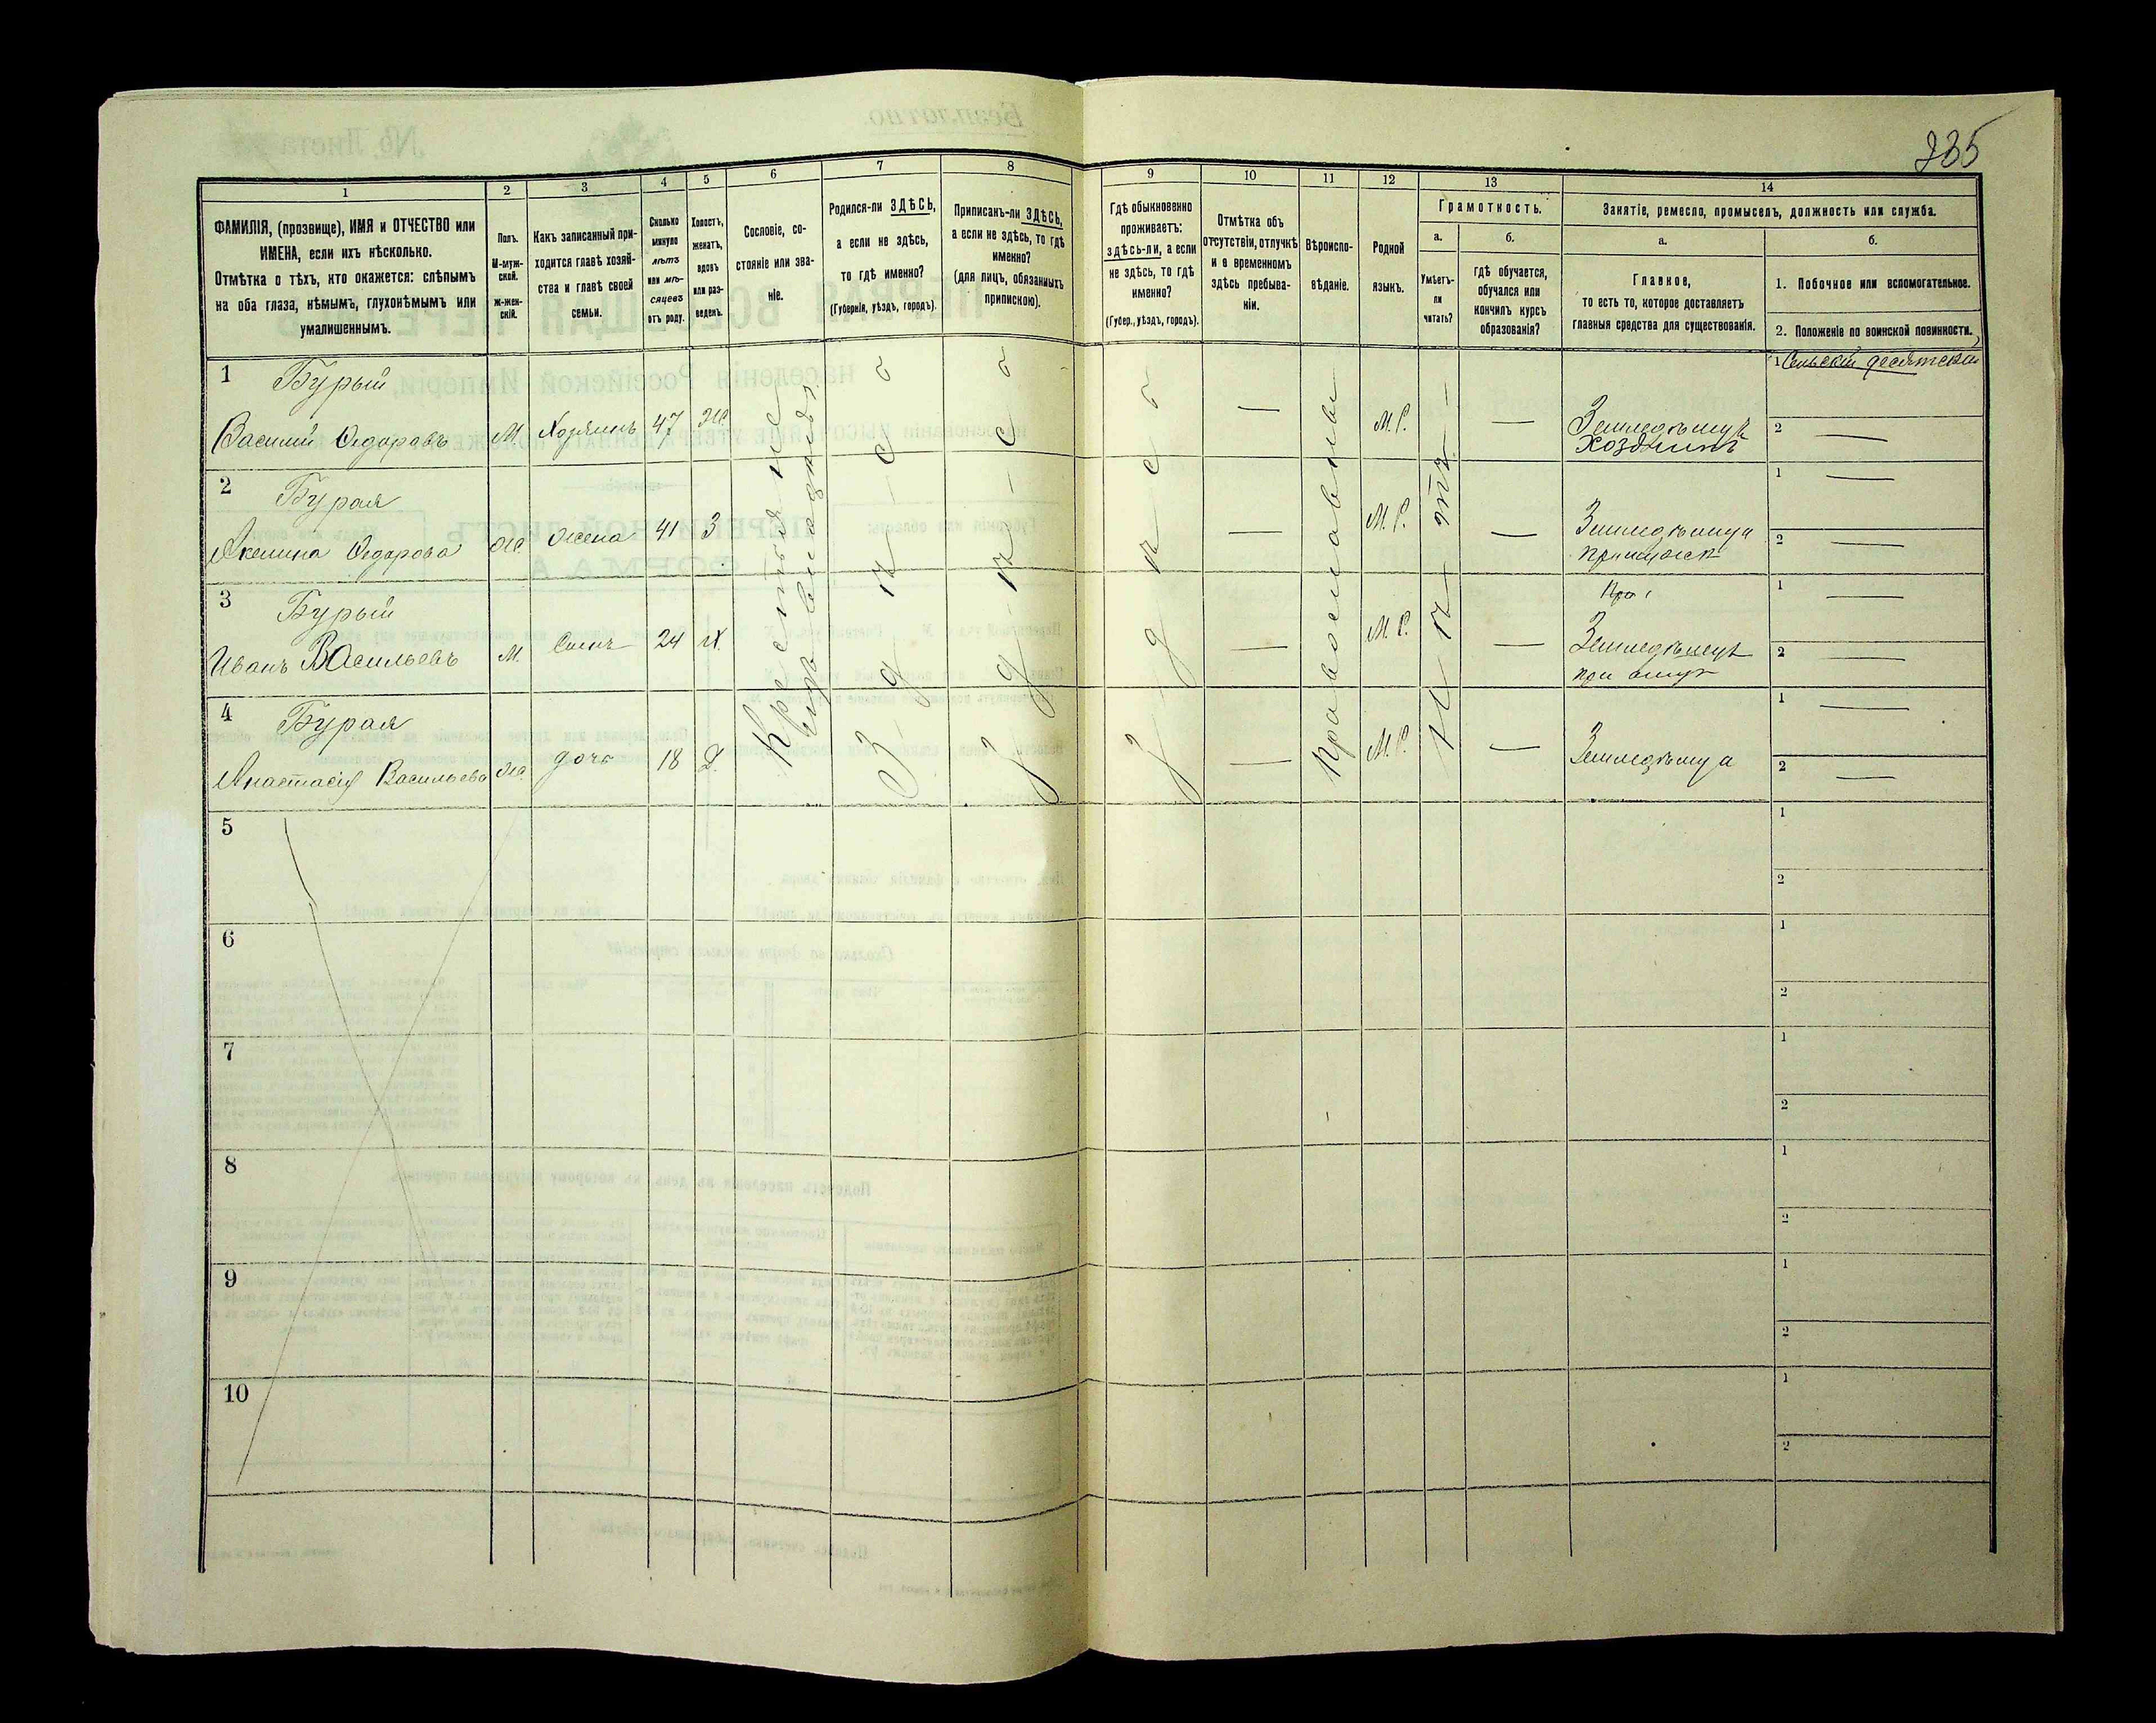 335
1
2
3
4
5
6
7
8
9
10
11
12
13
14
ФАМИЛІЯ, (прозвище), ИМЯ и ОТЧЕСТВО или
ИМЕНА, если ихъ нѣсколько.
Отмѣтка о тѣхъ, кто окажется: слѣпымъ
на оба глаза, нѣмымъ, глухонѣмымъ или
умалишеннымъ.
Полъ.
М-муж-
ской.
ж-жен-
скій.
Какъ записанный при-
ходится главѣ хозяй-
ства и главѣ своей
семьи.
Сколько
минуло
лѣтъ
или мѣ-
сяцевъ
отъ роду.
Холостъ,
женатъ,
вдовъ
или раз-
веденъ.
Сословіе, со-
стояніе или зва-
ніе.
Родился-ли ЗДѢСЬ,
а если не здѣсь,
то гдѣ именно?
(Губернія, уѣздъ, городъ).
Приписанъ-ли ЗДѢСЬ,
а если не здѣсь, то гдѣ
именно?
(для лицъ, обязанныхъ
припискою).
Гдѣ обыкновенно
проживаетъ:
здѣсь-ли, а если
не здѣсь, то гдѣ
именно?
(Губер., уѣздъ, городъ).
Отмѣтка объ
отсутствіи, отлучкѣ
и о временномъ
здѣсь пребыва-
ніи.
Вѣроиспо-
вѣданіе.
Родной
языкъ.
Грамотность.
а.
Умѣетъ-
ли
читать?
б.
гдѣ обучается,
обучался или
кончилъ курсъ
образованія?
Занятіе, ремесло, промыселъ, должность или служба.
а.
Главное,
то есть то, которое доставляетъ
главныя средства для существованія.
б.
1. Побочное или вспомогательное.
2. Положеніе по воинской повинности.
1 Бурый
Василій Ѳедоровъ М. Хозяинъ 47 Ж.
Крестьянне
здѣсь
здѣсь
здѣсь
—
Православны
М. Р.
Нѣтъ
—
Земледѣлецъ
хозяинъ
1 Сельскій десятскій
2 —
2 Бурая
Акелина Ѳедорова Ж. жена 41 З
— М. Р. —
Земледѣлица
1 —
2 —
3 Бурый
Иванъ Васильевъ М. Сынъ 24 Х.
— М. Р. —
При
Земледѣлецъ
при отцѣ
1 —
2 —
4 Бурая
Анастасія Васильева Ж. дочь 18 Д.
— М. Р. —
Земледѣлица
1 —
2 —
5
1
2
6
1
2
7
1
2
8
1
2
9
1
2
10
1
2